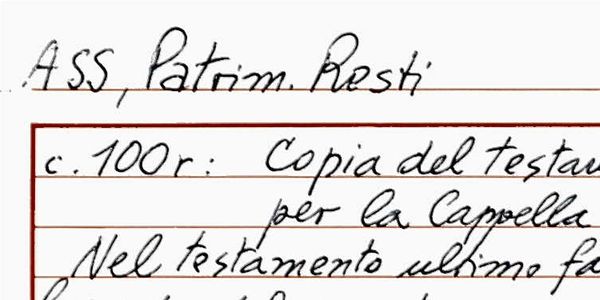 ASS, Patrim. Resti
c. 100r: Copia del testam
per la Cappella
Nel testamento ultimo fa